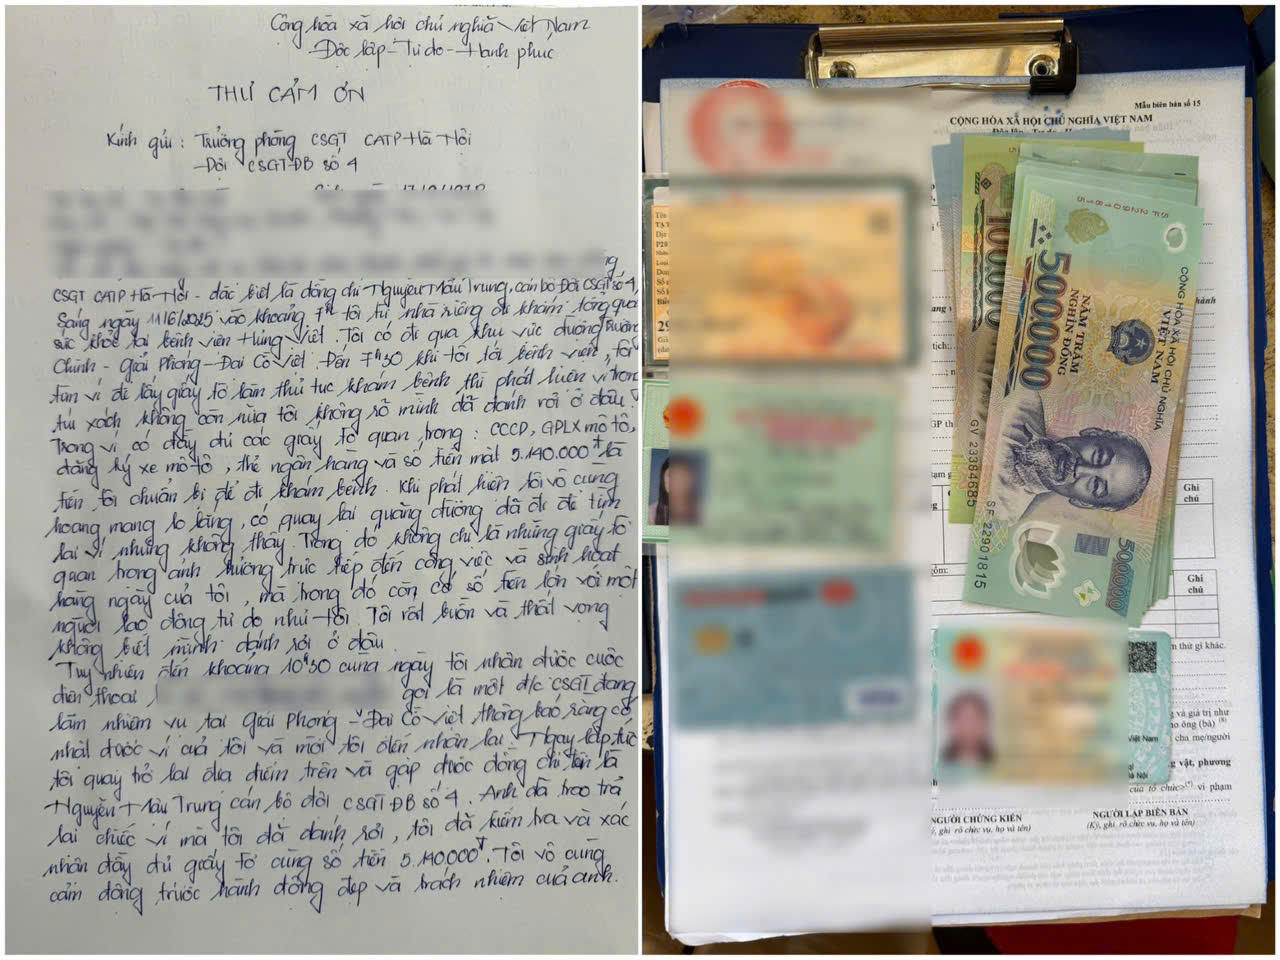 Cộng hòa xã hội chủ nghĩa Việt Nam
Độc lập - Tự do - Hạnh phúc
THƯ CẢM ƠN
Kính gửi: Trưởng phòng CSGT CATP Hà Nội
- Đội CSGT-ĐB số 4
CSGT CATP Hà Nội - đặc biệt là đồng chí Nguyễn Mậu Trung, cán bộ Đội CSGT số 4,
Sáng ngày 11/6/2025 vào khoảng 7h tôi từ nhà riêng đi khám tổng quát
sức khỏe tại bệnh viện Hưng Việt. Tôi có đi qua khu vực đường Trường
Chinh - Giải Phóng - Đại Cồ Việt. Đến 7h30 khi tôi tới bệnh viện, tôi
tìm ví để lấy giấy tờ làm thủ tục khám bệnh thì phát hiện ví trong
túi xách không còn nữa tôi không rõ mình đã đánh rơi ở đâu.
Trong ví có đầy đủ các giấy tờ quan trọng: CCCD, GPLX mô tô,
đăng ký xe mô tô, thẻ ngân hàng và số tiền mặt 5.140.000đ là
tiền tôi chuẩn bị để đi khám bệnh. Khi phát hiện tôi vô cùng
hoang mang lo lắng, có quay lại quãng đường đã đi để tìm
lại ví nhưng không thấy. Trong đó không chỉ là những giấy tờ
quan trọng ảnh hưởng trực tiếp đến công việc và sinh hoạt
hàng ngày của tôi, mà trong đó còn có số tiền lớn với một
người lao động tự do như tôi. Tôi rất buồn và thất vọng
không biết mình đánh rơi ở đâu.
Tuy nhiên đến khoảng 10h30 cùng ngày tôi nhận được cuộc
điện thoại gọi là một đ/c CSGT đang
làm nhiệm vụ tại Giải Phóng - Đại Cồ Việt thông báo rằng có
nhặt được ví của tôi và mời tôi đến nhận lại. Ngay lập tức
tôi quay trở lại địa điểm trên và gặp được đồng chí tên là
Nguyễn Mậu Trung cán bộ đội CSGT ĐB số 4. Anh đã trao trả
lại chiếc ví mà tôi đã đánh rơi, tôi đã kiểm tra và xác
nhận đầy đủ giấy tờ cùng số tiền 5.140.000đ. Tôi vô cùng
cảm động trước hành động đẹp và trách nhiệm của anh.
Mẫu biên bản số 15
CỘNG HÒA XÃ HỘI CHỦ NGHĨA VIỆT NAM
CỘNG HÒA XÃ HỘI CHỦ NGHĨA
VIỆT NAM
NĂM TRĂM
NGHÌN ĐỒNG
500000
SF 22901815
GV 23384685
500000
Ghi
chú
Ghi
chú
Việt Nam
NGƯỜI CHỨNG KIẾN
(Ký, ghi rõ chức vụ, họ và tên)
NGƯỜI LẬP BIÊN BẢN
(Ký, ghi rõ chức vụ, họ và tên)